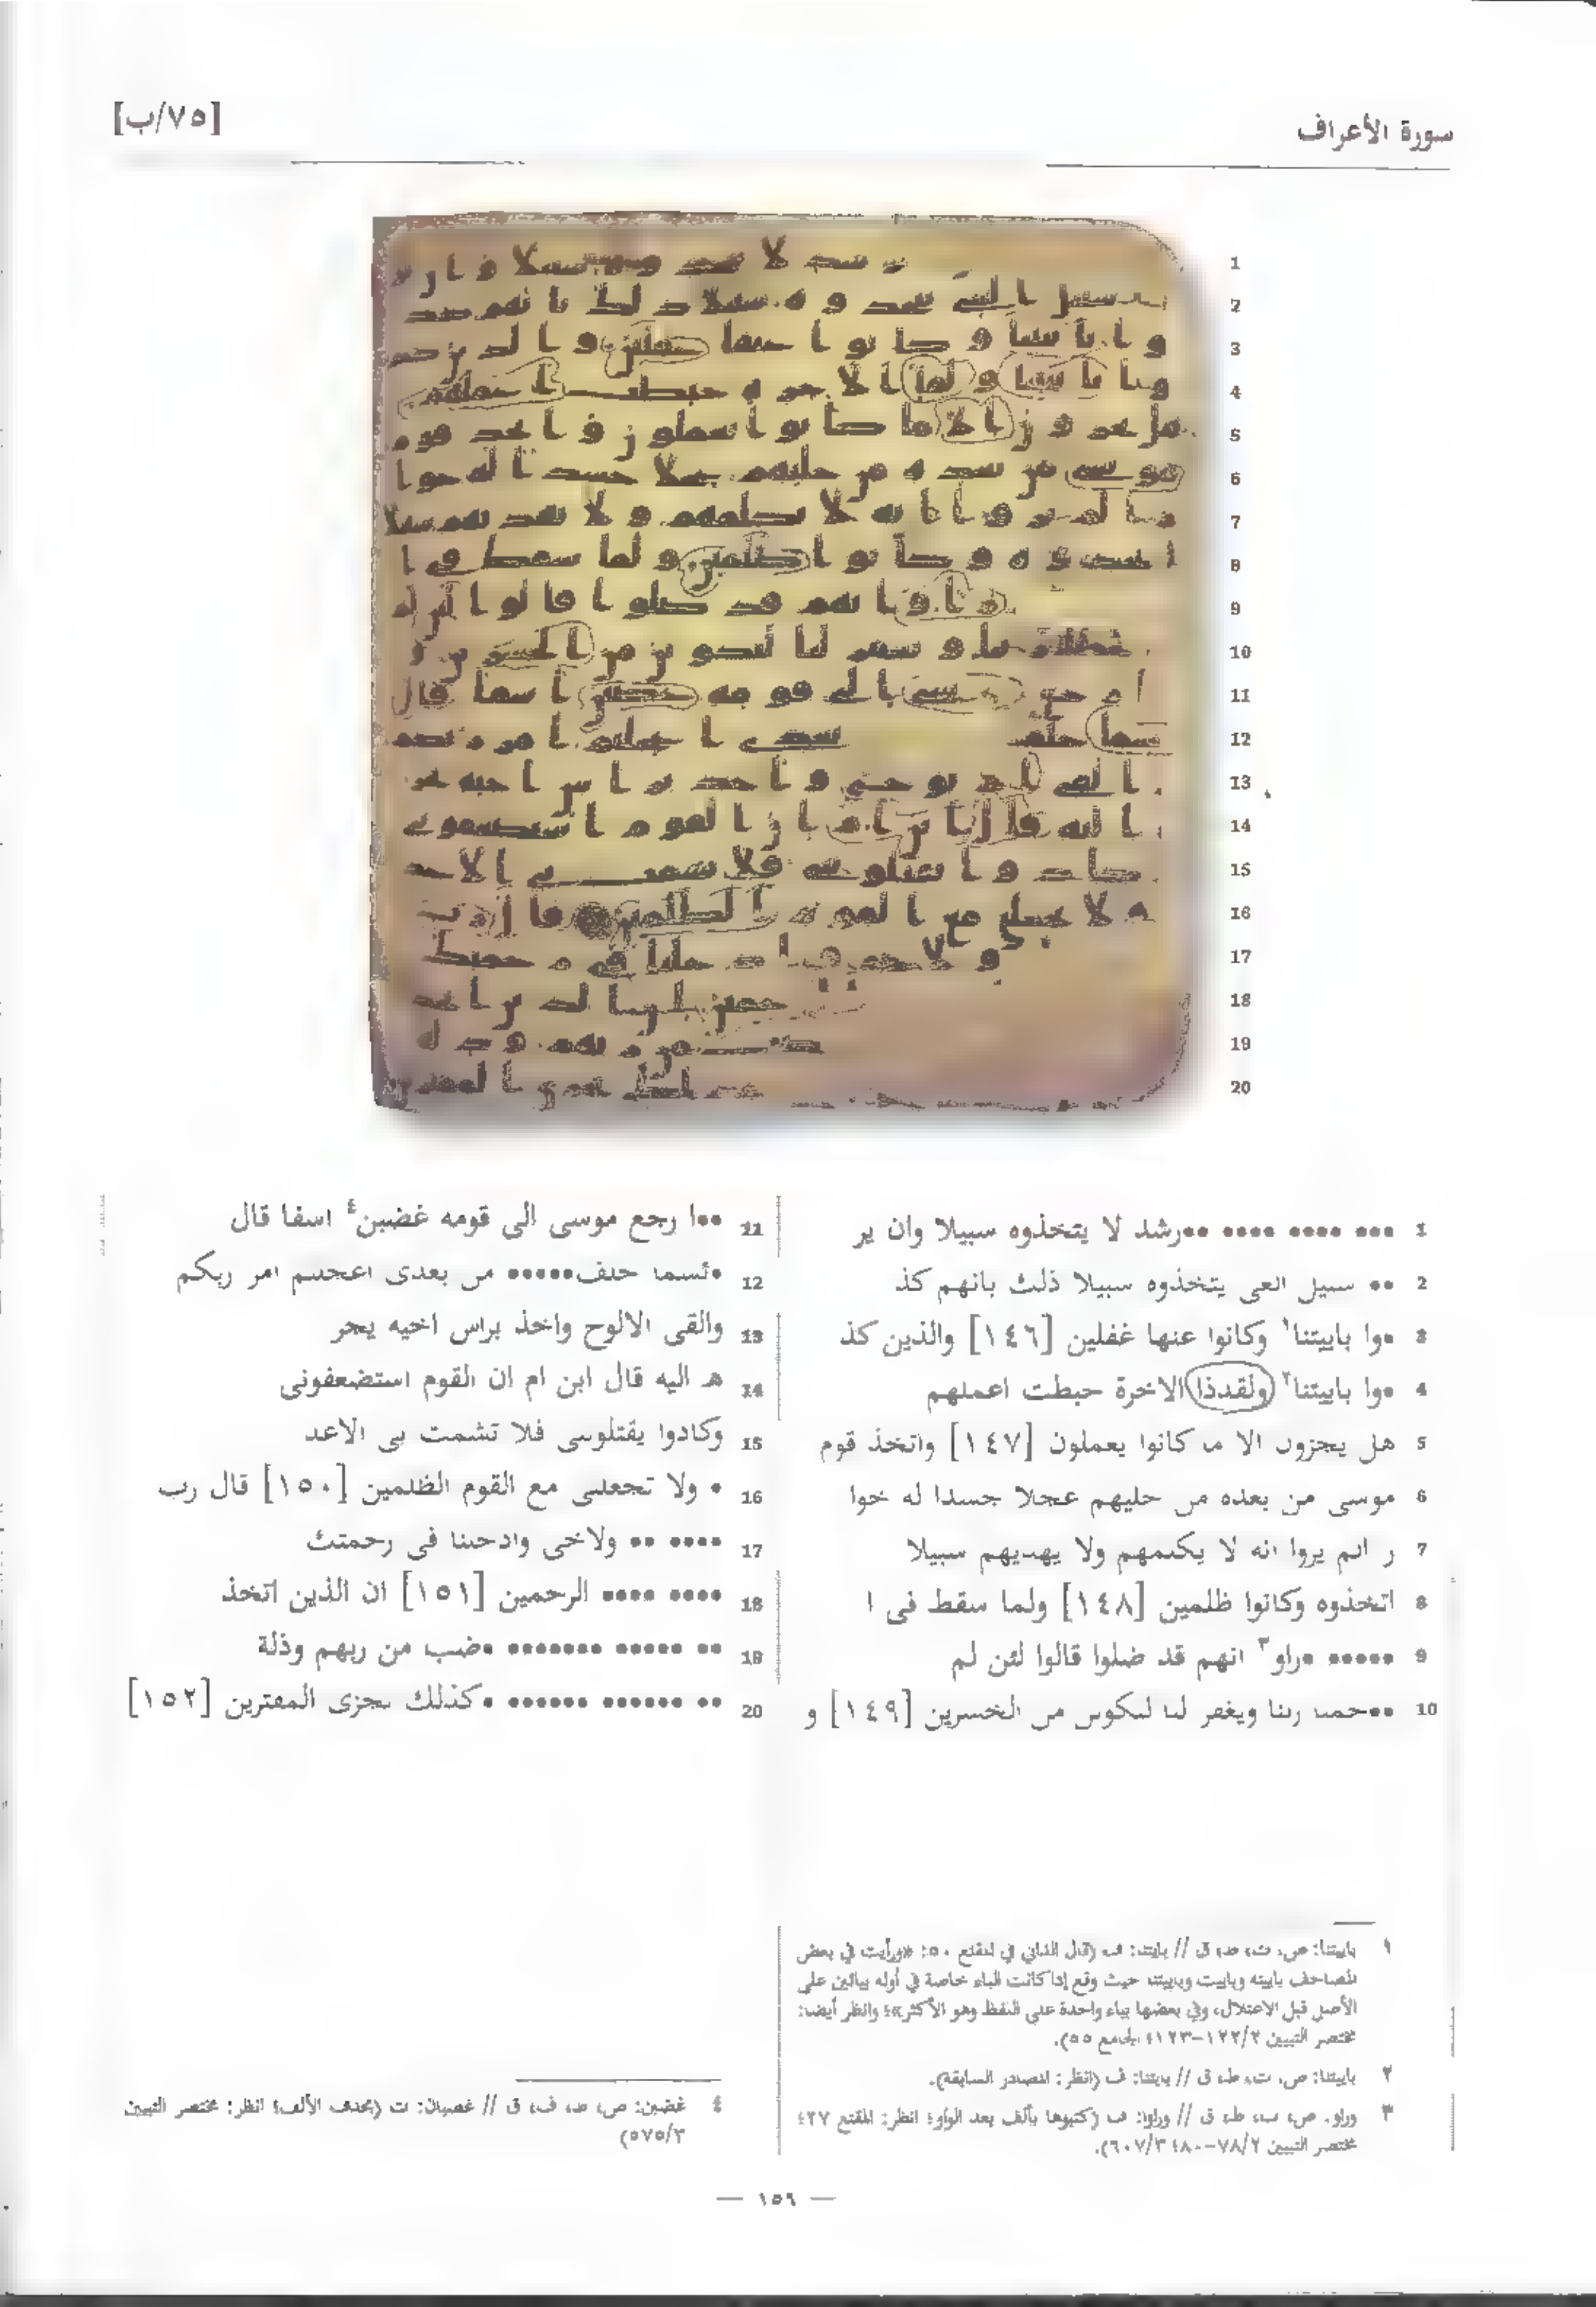 سورة الأعراف
[٧٥/ب]
1
2
3
4
5
6
7
8
9
10
11
12
13
14
15
16
17
18
19
20
1 ••• •••• •••• ••••رشد لا يتخذوه سبيلا وان ير
2 •• سبيل الغى يتخذوه سبيلا ذلك بانهم كذ
3 •وا باييتنا١ وكانوا عنها غفلين [١٤٦] والذين كذ
4 •وا باييتنا٢ ولقدذا الاخرة حبطت اعملهم
5 هل يجزون الا ما كانوا يعملون [١٤٧] واتخذ قوم
6 موسى من بعده من حليهم عجلا جسدا له خوا
7 ر الم يروا انه لا يكلمهم ولا يهديهم سبيلا
8 اتخذوه وكانوا ظلمين [١٤٨] ولما سقط فى ا
9 ••••• •راو٣ انهم قد ضلوا قالوا لئن لم
10 ••حمنا ربنا ويغفر لنا لنكونن من الخسرين [١٤٩] و
11 ••ا رجع موسى الى قومه غضبن٤ اسفا قال
12 •ئسما خلف••••• من بعدى اعجلتم امر ربكم
13 والقى الالوح واخذ براس اخيه يجر
14 ه اليه قال ابن ام ان القوم استضعفونى
15 وكادوا يقتلونى فلا تشمت بى الاعد
16 • ولا تجعلنى مع القوم الظلمين [١٥٠] قال رب
17 •••• •• ولاخى وادخلنا فى رحمتك
18 •••• •••• الرحمين [١٥١] ان الذين اتخذ
19 •• ••••• ••••••• •ضب من ربهم وذلة
20 •• •••••• •••••• •كذلك نجزى المفترين [١٥٢]
١ باييتنا: ص، ت، ط، ق // بايتنا: ف (قال الداني في المقنع ٥٠: «ورأيت في بعض
المصاحف باييته وباييت وباييتنا حيث وقع إذا كانت الباء خاصة في أوله بيائين على
الأصل قبل الاعتلال، وفي بعضها بياء واحدة على اللفظ وهو الأكثر»؛ وانظر أيضا:
مختصر التبيين ١٢٢/٢-١٢٣؛ الجامع ٥٥).
٢ باييتنا: ص، ت، ط، ق // بايتنا: ف (انظر: المصادر السابقة).
٣ وراو: ص، ت، ط، ق // وراوا: ف (كتبوها بألف بعد الواو؛ انظر: المقنع ٢٧؛
مختصر التبيين ٧٨/٢-٨٠؛ ٦٠٧/٣).
٤ غضبن: ص، ط، ف، ق // غضبان: ت (بحذف الألف؛ انظر: مختصر التبيين
٥٧٥/٣)
— ١٥٦ —